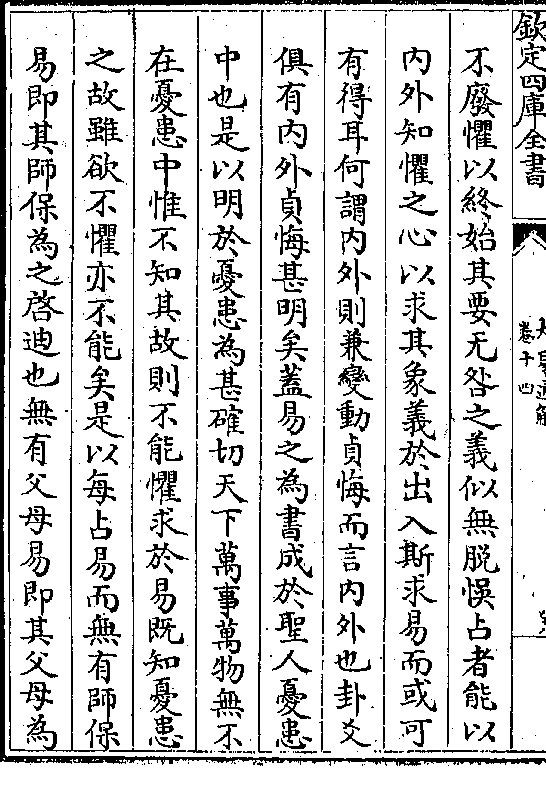 欽定四庫全書
卷十四
不廢懼以終始其要无咎之義似無脱悞占者能以
内外知懼之心以求其象義於出入斯求易而或可
有得耳何謂内外則兼變動貞悔而言内外也卦爻
俱有内外貞悔甚明矣葢易之為書成於聖人憂患
中也是以明於憂患為甚確切天下萬事萬物無不
在憂患中惟不知其故則不能懼求於易既知憂患
之故雖欲不懼亦不能矣是以每占易而無有師保
易即其師保為之啓迪也無有父母易即其父母為